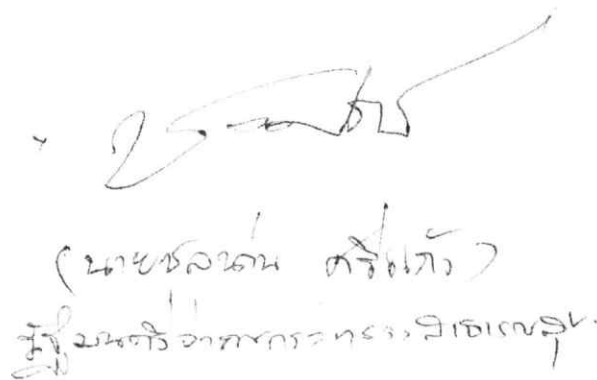 (นายชลน่าน ศรีแก้ว)
รัฐมนตรีว่าการกระทรวงสาธารณสุข